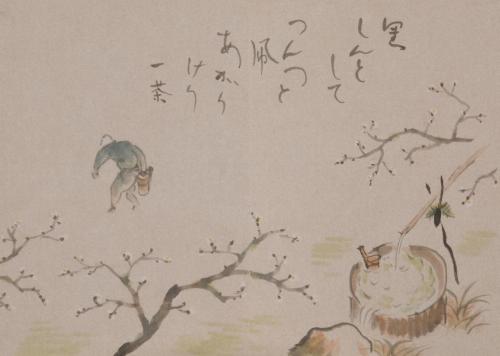 里
しんと
して
つんつと
凧
あがり
けり
一茶